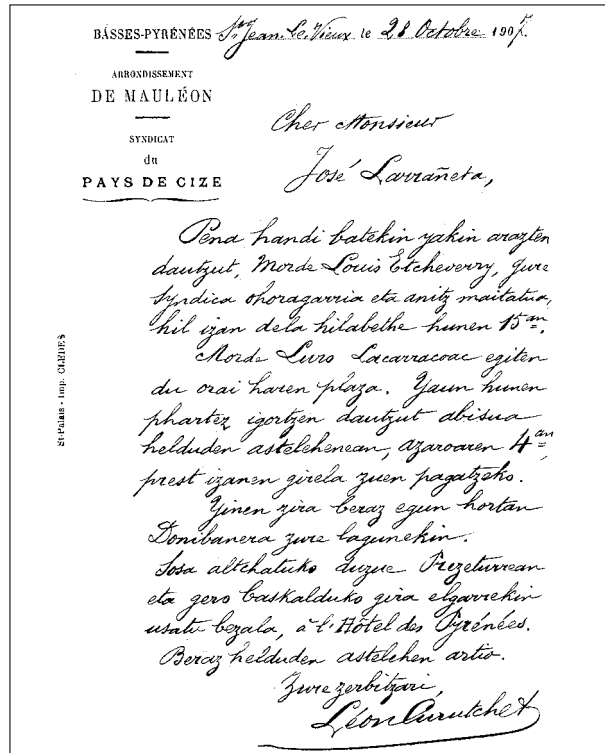 BASSES-PYRÉNÉES St. Jean-le-Vieux le 28 Octobre 1907.
ARRONDISSEMENT
DE MAULÉON
SYNDICAT
du
PAYS DE CIZE
Cher Monsieur
José Larrañeta,
Pena handi batekin yakin arazten
dautzut, Morde Louis Etcheverry, gure
Syndica ohoragarria eta anitz maitatua,
hil izan dela hilabethe hunen 15an.
Morde Luro Lacarracoac egiten
du orai haren plaza. Yaun hunen
phartez igortzen dautzut abisua
helduden astelehenean, azaroaren 4an,
prest izanen girela zuen pagatzeko.
Yinen zira beraz egun hortan
Donibanera zure lagunekin.
Sosa altchatuko duzue Prezeturrean
eta gero baskalduko gira elgarrekin
usatu bezala, à l'Hôtel des Pyrénées.
Beraz helduden astelehen artio.
Zure zerbitzari,
Léon Curutchet
St-Palais - Imp. CLÈDES